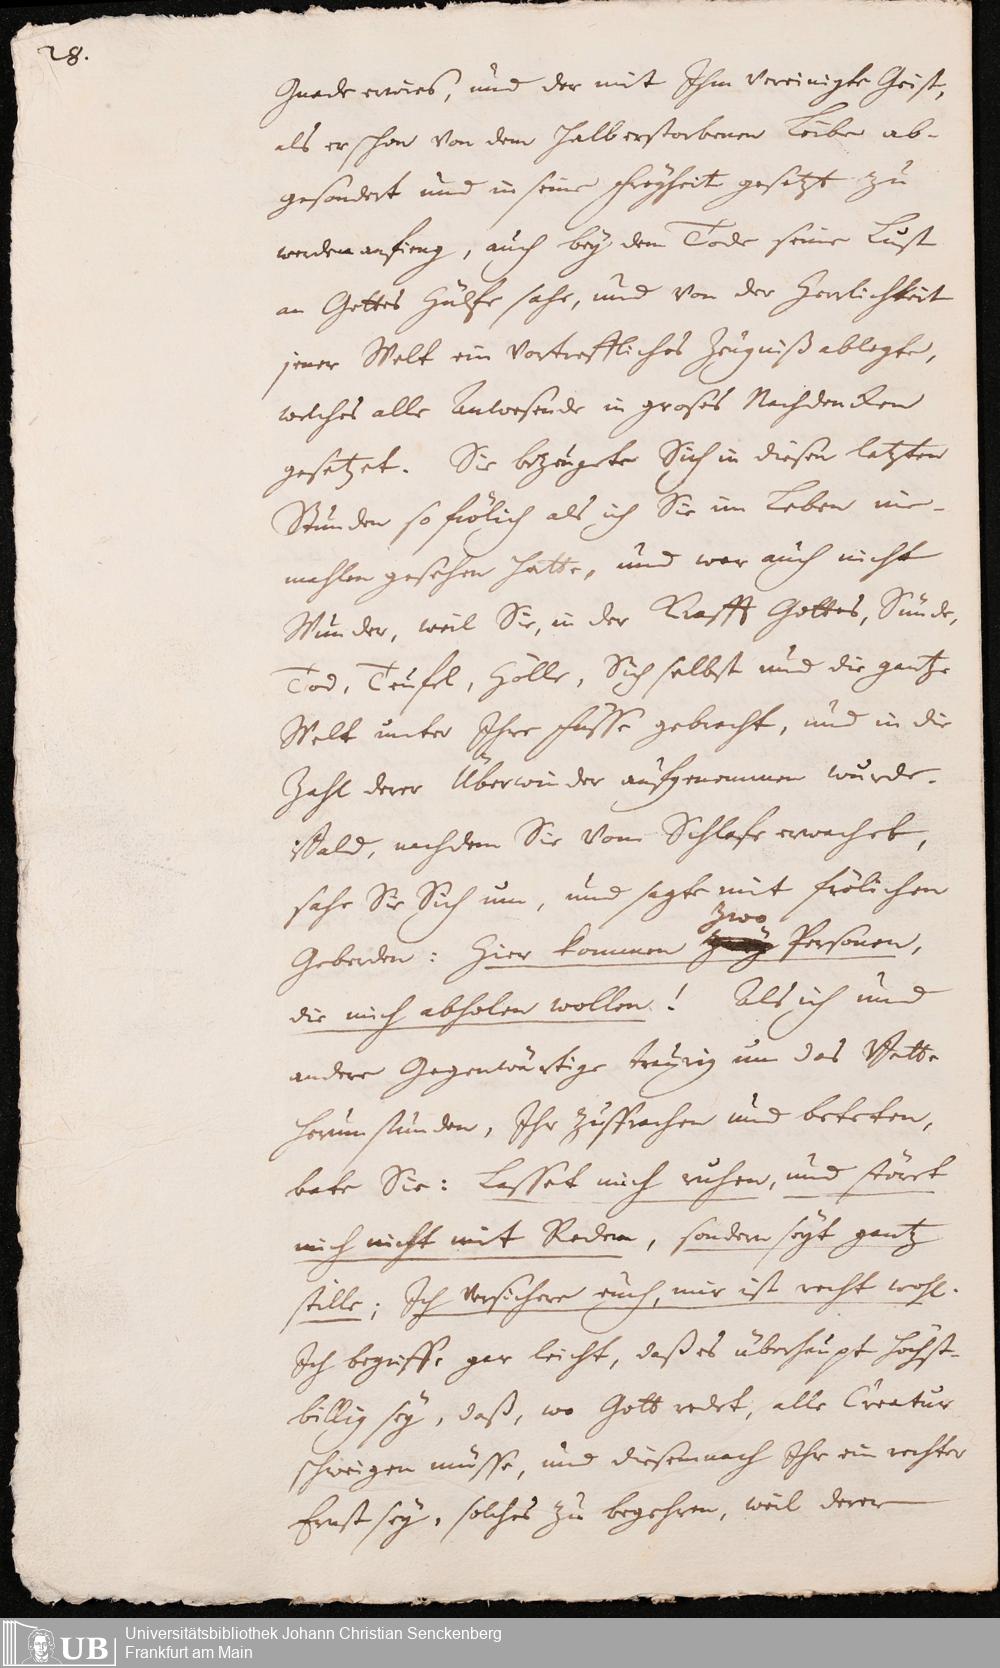 28.
Gnade erwies, und der mit Ihm vereinigte Geist,
als er schon von dem halb erstorbenen Leibe ab-
gesondert und in seine Freyheit gesetzt zu
werden anfieng, auch bey dem Tode seine Lust
an Gottes Hülfe sahe, und von der Herrlichkeit
jener Welt ein vortreffliches Zeugniß ablegte,
welches alle Anwesende in groses Nachdencken
gesetzet. Sie bezeugete Sich in diesen letzten
Stunden so frölich als ich Sie im Leben nie-
mahlen gesehen hatte, und war auch nicht
Wunder, weil Sie, in der Krafft Gottes, Sünde,
Tod, Teufel, Hölle, Sich selbst und die gantze
Welt unter Ihre Füsse gebracht, und in die
Zahl derer Überwinder aufgenommen wurde.
Bald, nachdem Sie vom Schlafe erwachet,
sahe Sie Sich um, und sagte mit frölichen
zwo
Geberden: Hier kommen Personen,
die mich abholen wollen! Als ich und
andere Gegenwärtige traurig um das Bette
herum stunden, Ihr zusprachen und beteten,
bate Sie: Lasset mich ruhen, und störet
mich nicht mit Reden, sondern seyt gantz
stille; Ich versichere euch, mir ist recht wohl.
Ich begriffe gar leicht, daß es überhaupt höchst-
billig sey, daß, wo Gott redet, alle Creatur
schweigen müsse, und diesemnach Ihr ein rechter
Ernst sey, solches zu begehren, weil derer
UB
Universitätsbibliothek Johann Christian Senckenberg
Frankfurt am Main